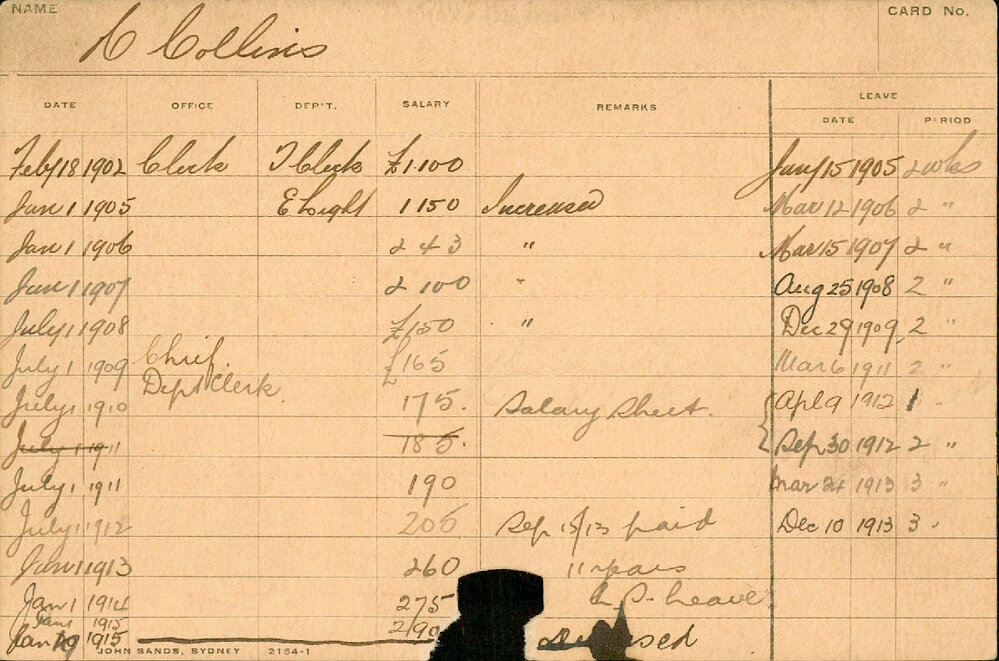 NAME
CARD No.
Collins
DATE OFFICE DEP'T. SALARY REMARKS LEAVE
DATE PERIOD
Feby 18 1902 Clerk T Clerk £1.100 Jany 15 1905 2 wks
Jan 1 1905 E Light 1 150 Increased Mar 12 1906 2 "
Jan 1 1906 2 4 3 " Mar 15 1907 2 "
Jan 1 1907 2 100 " Aug 25 1908 2 "
July 1 1908 £150 " Dec 29 1909 2 "
July 1 1909 Chief £165 Mar 6 1911 2 "
Dept Clerk
July 1 1910 175. Salary Sheet. Apl 9 1912 1 "
July 1 1911 185. Sep 30 1912 2 "
July 1 1911 190 Mar 1913 3 "
July 1 1912 205 Sep 15/13 paid Dec 10 1913 3 "
Jan 1 1913 260 11 years
Jan 1 1914 275 Leave
Jan 1 1915 290
Jan 19 1915
JOHN SANDS, SYDNEY 2164-1